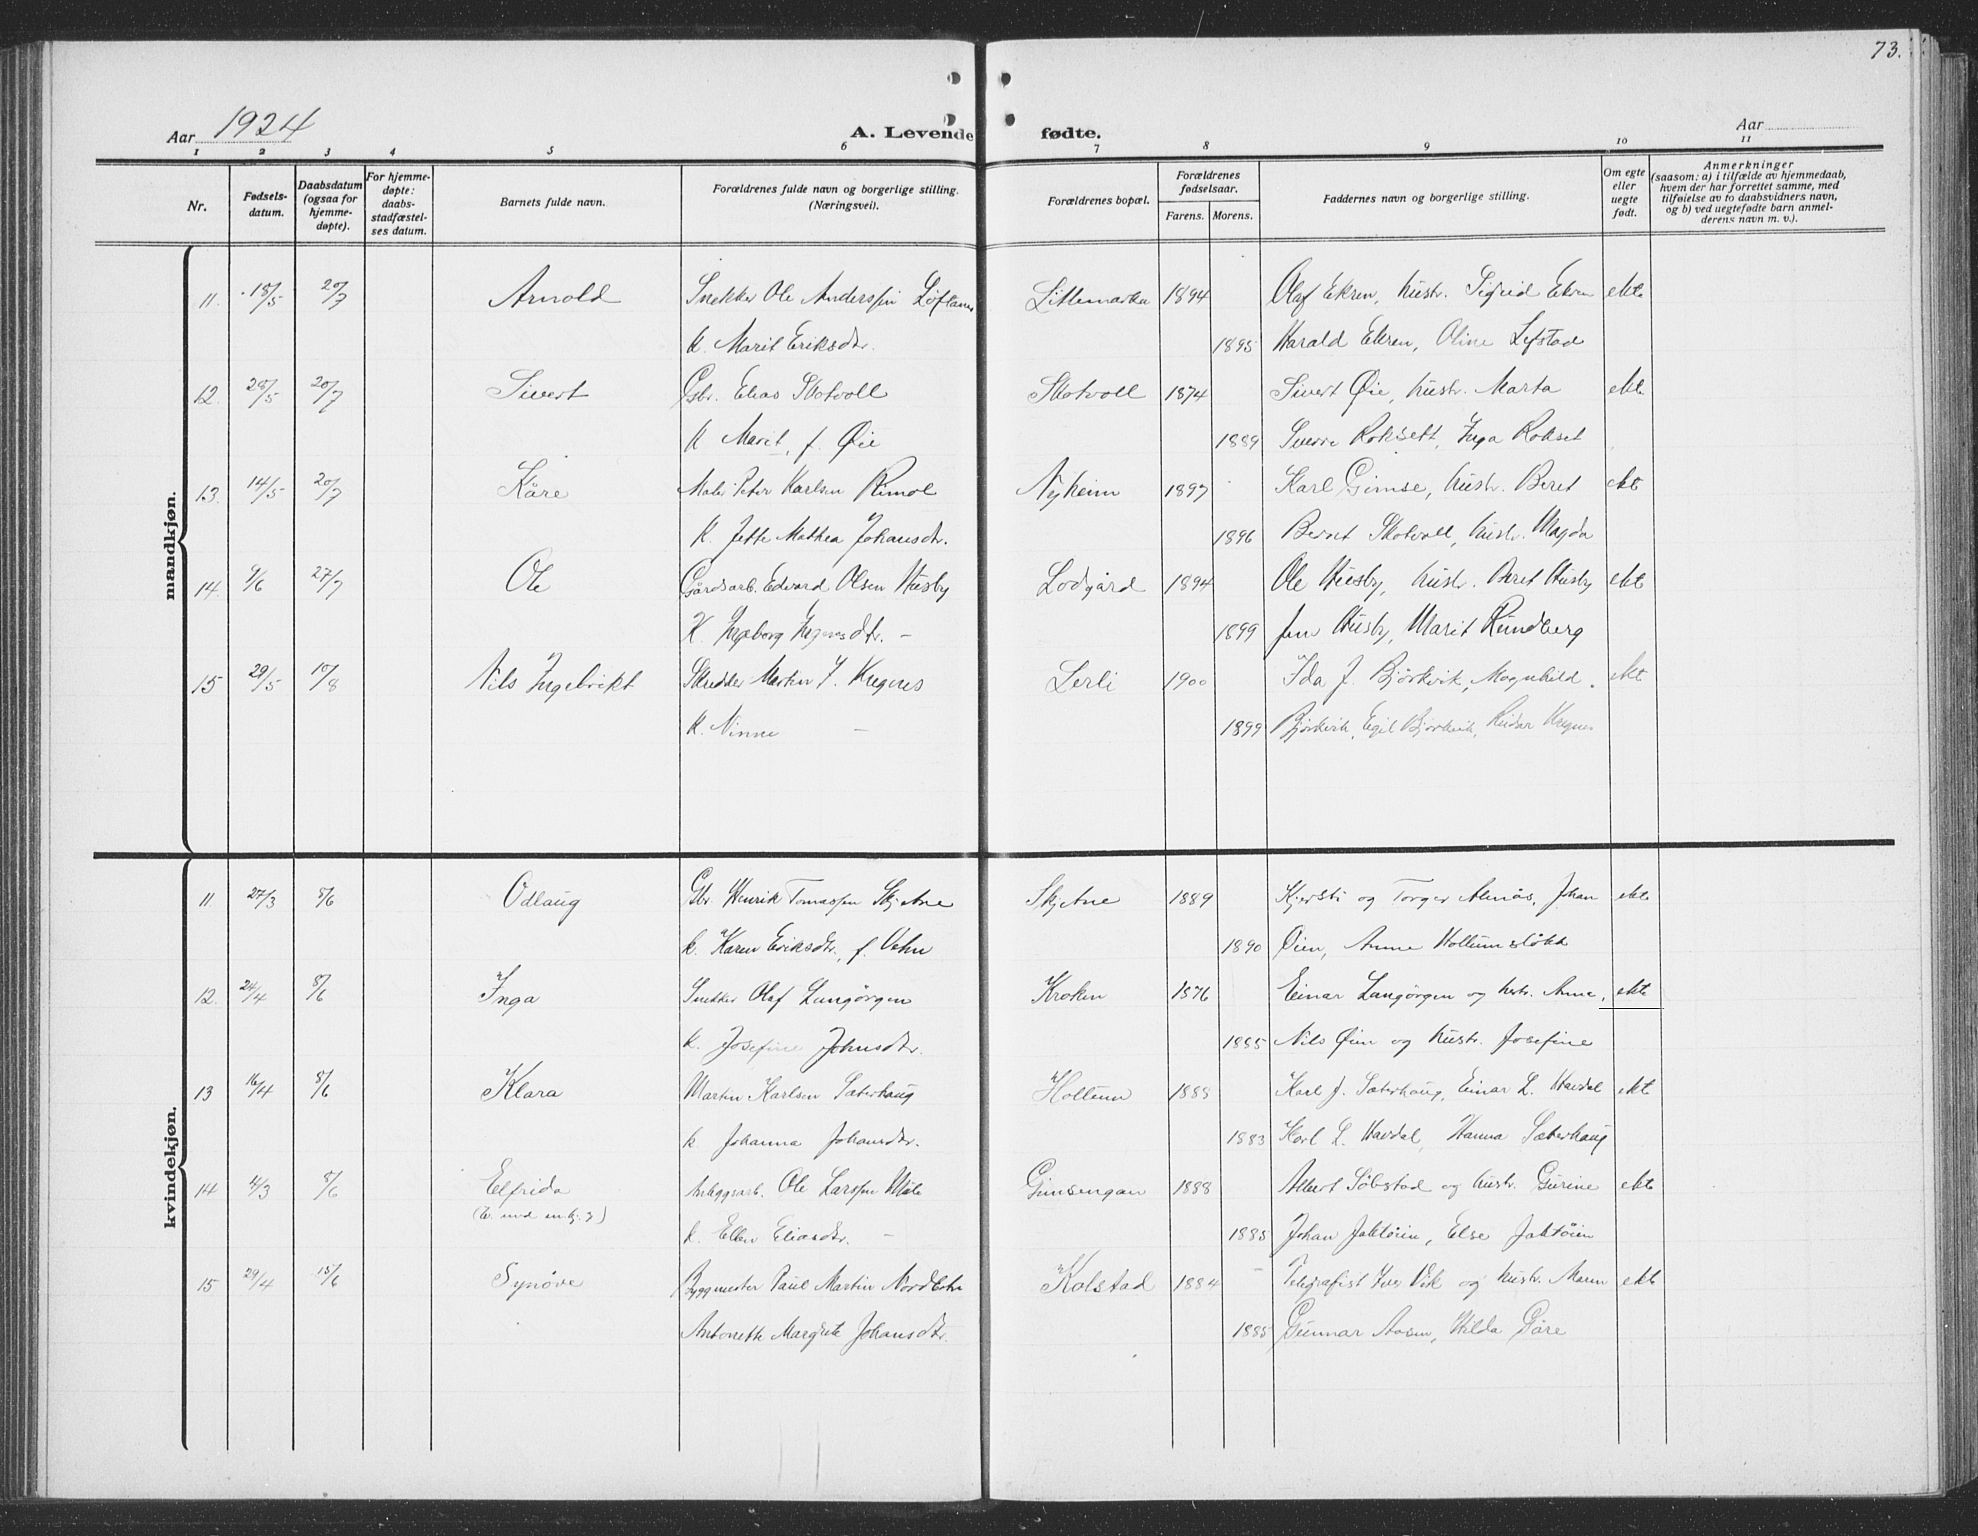 73.
Aar 1924 A. Levende fødte. Aar
1 2 3 4 5 6 7 8 9 10 11
Nr. Fødselsdatum. Daabsdatum (ogsaa for hjemmedøpte). For hjemmedøpte: daabsstadfæstelses datum. Barnets fulde navn. Forældrenes fulde navn og borgerlige stilling. (Næringsvei). Forældrenes bopæl. Forældrenes fødselsaar. Farens. Morens. Faddernes navn og borgerlige stilling. Om egte eller uegte født. Anmerkninger (saasom: a) i tilfælde av hjemmedaab, hvem der har forrettet samme, med tilføielse av to daabsvidners navn, og b) ved uegtefødte barn anmelderens navn m. v.).
mandkjøn.
11. 18/5 20/7 Arnold Snekker Ole Anderssen Littlemarka 1894 Olaf Ekren, hustr. Sigrid Ekren ekte
k. Marit Eriksdtr. 1895 Harald Ekren, Oline Lefstad
12. 28/5 20/7 Sivert Gbr. Elias Skotvoll Skotvoll 1874 Sivert Øie, hustr. Marta ekte
k Marit, f. Øie 1889 Sverre Roksett, Inga Rokset
13. 14/5 20/7 Kåre Maler Peter Karlsen Rimol Nyheim 1897 Karl Gimse, hustr. Beret ekt
k. Jette Mathea Johansdtr. 1896 Bernt Skotvoll, hustr. Magda
14. 9/6 27/7 Ole Gårdsarb. Edvard Olsen Husby Lodgård 1894 Ole Husby, hustr. Beret Husby ekt
K. Ingeborg 1899 Jon Husby, Marit Rundberg
15 29/5 17/8 Nils Ingebrikt Skredder Martin J. Krognes Lerli 1900 Ida J. Bjørkvik, Magnhild ekt
k. Ninni — 1899 Bjørkvik, Egil Bjørkvik, Reidar Krognes
kvindekjøn.
11. 27/3 8/6 Odlaug Gbr. Henrik Tomassen Skjetne Skjetne 1889 Kjersti og Torger Almås, Johan ekte
k. Karen Eriksdtr., f. 1890 Øien, Anne Hollumsløkk
12. 24/4 8/6 Inga Snekker Olaf Langørgen Kroken 1876 Einar Langørgen og hustr. Anne, ekte
k. Josefine Johnsdtr. 1885 Nils Øien og hustr. Josefine
13 16/4 8/6 Klara Martin Karlsen Sæterhaug Hollum 1888 Karl J. Sæterhaug, Einar L. Havdal ekt
k Johanna Johansdtr. 1883 Karl L. Havdal, Hanna Sæterhaug
14 4/3 8/6 Elfrida Anleggsarb. Ole Larssen Gimsengan 1888 Albert Søbstad og hustr. Gurine ekte
k. Ellen Eliasdtr. — 1885 Johan Jaktøien, Else Jaktøien
15 29/4 15/6 Synøve Byggmester Paul Martin Kolstad 1884 Telegrafist Iver Vik og hustr. Maren ekte
Antonette Margrete Johansdtr. 1885 Gunnar Aasen, Hilda Gåre